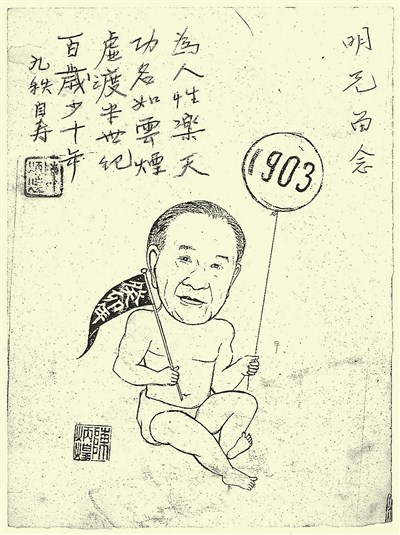 明兄留念
為人性樂天
功名如雲煙
虛渡半世紀
百歲少十年
九秩自壽
1903
陳炳煌